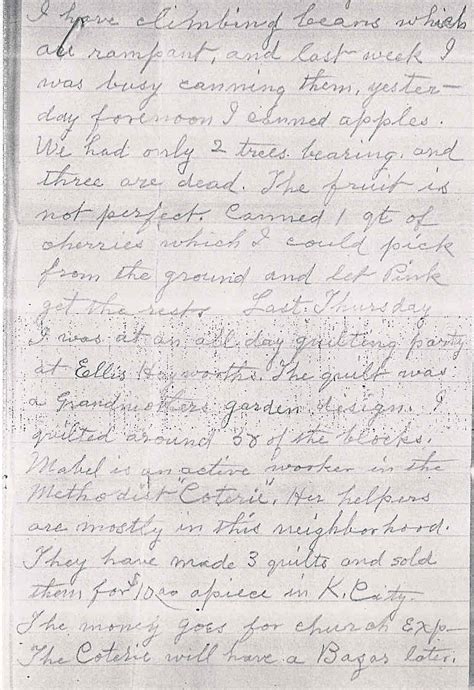 I have climbing beans which
are rampant, and last week I
was busy canning them, yester-
day forenoon I canned apples.
We had only 2 trees bearing, and
three are dead. The fruit is
not perfect. Canned 1 qt of
cherries which I could pick
from the ground and let Pink
get the rest. Last Thursday
I was at an all day quilting party
at Ellis Heyworths. The quilt was
a Grandmothers garden design. I
quilted around 38 of the blocks.
Mabel is an active worker in the
Methodist "Coterie". Her helpers
are mostly in this neighborhood.
They have made 3 quilts and sold
them for $10.00 apiece in K. City.
The money goes for church Exp-
The Coterie will have a Bazar later.